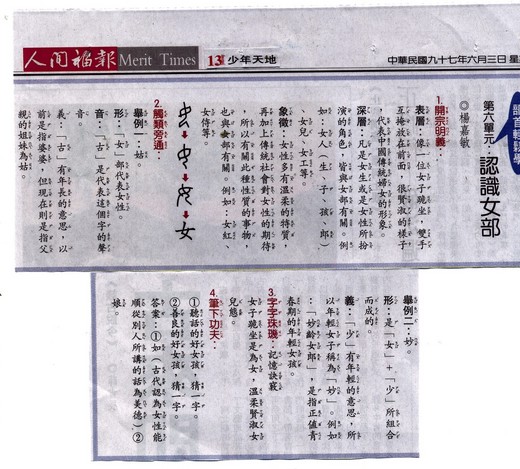 人間福報 Merit Times
13 少年天地
中華民國九十七年六月三日
第六單元：認識女部
◎楊嘉敏
1.開宗明義：
表層：像一位女子跪坐，雙手
互掩放在前面，很賢淑的樣子
，代表中國傳統婦女的形象。
深層：凡是女生或是女性所扮
演的角色，皆與女部有關。例
如：女人（生、子、孩、郎）
、女兒、女工等。
象徵：女性多有溫柔的特質，
再加上傳統社會對女性的期待
，所以有關此種性質的事物，
也與女部有關。例如：女紅、
女侍等。
女
2.觸類旁通：
舉例一：姑。
形：「女」部代表女性。
音：「古」是代表這個字的聲
音。
義：「古」有年長的意思，以
前是指婆婆，但現在則是指父
親的姐妹為姑。
舉例二：妙。
形：是「女」+「少」所組合
而成的。
義：「少」有年輕的意思，所
以年輕女子稱為「妙」。例如
：「妙齡女郎」，是指正值青
春期的年輕女孩。
3.字字珠璣：記憶訣竅
女子跪坐是為女，溫柔賢淑女
兒態。
4.筆下功夫：
①聽話的好女孩，猜一字。
②善良的好女孩，猜一字。
答案：①如（古代認為女性能
順從別人所講的話為美德）②
娘。